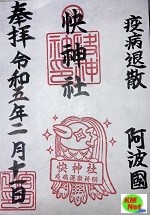 疫病退散
阿波國
快神社
奉拝
令和五年一月十一日
快神社
疫病退散祈願
KM
Net